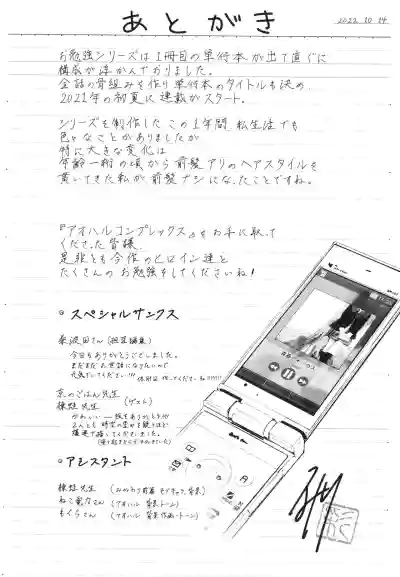 あとがき
2022 10 14
お勉強シリーズは1冊目の単行本が出て直ぐに
構成が浮かんでおりました。
全話の骨組みを作り単行本のタイトルも決め
2021年の初夏に連載がスタート。
シリーズを制作したこの1年間、私生活でも
色々なことがありましたが
特に大きな変化は
年齢一桁の頃から前髪アリのヘアスタイルを
貫いてきた私が前髪ナシになったことですね。
『アオハルコンプレックス』をお手に取って
くださった皆様、
是非とも今作のヒロイン達と
たくさんのお勉強をしてくださいね!
スペシャルサンクス
桑波田さん(担当編集)
今回もありがとうございました。
まだまだお世話になりたいので
元気でいてください!!!
京のごはん先生
(ゲスト)
かわいい
アシスタント
(アオハル 背景・トーン)
もくらさん
(アオハル 背景作画・トーン)